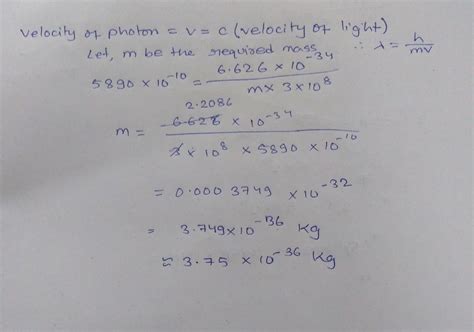 velocity of photon = v = c (velocity of light)
Let, m be the required mass ∴ λ = h/mv
5890 × 10^-10 = 6.626 × 10^-34 / m × 3 × 10^8
2.2086
m = 6.626 × 10^-34 / 3 × 10^8 × 5890 × 10^-10
= 0.0003749 × 10^-32
= 3.749 × 10^-36 Kg
≈ 3.75 × 10^-36 Kg